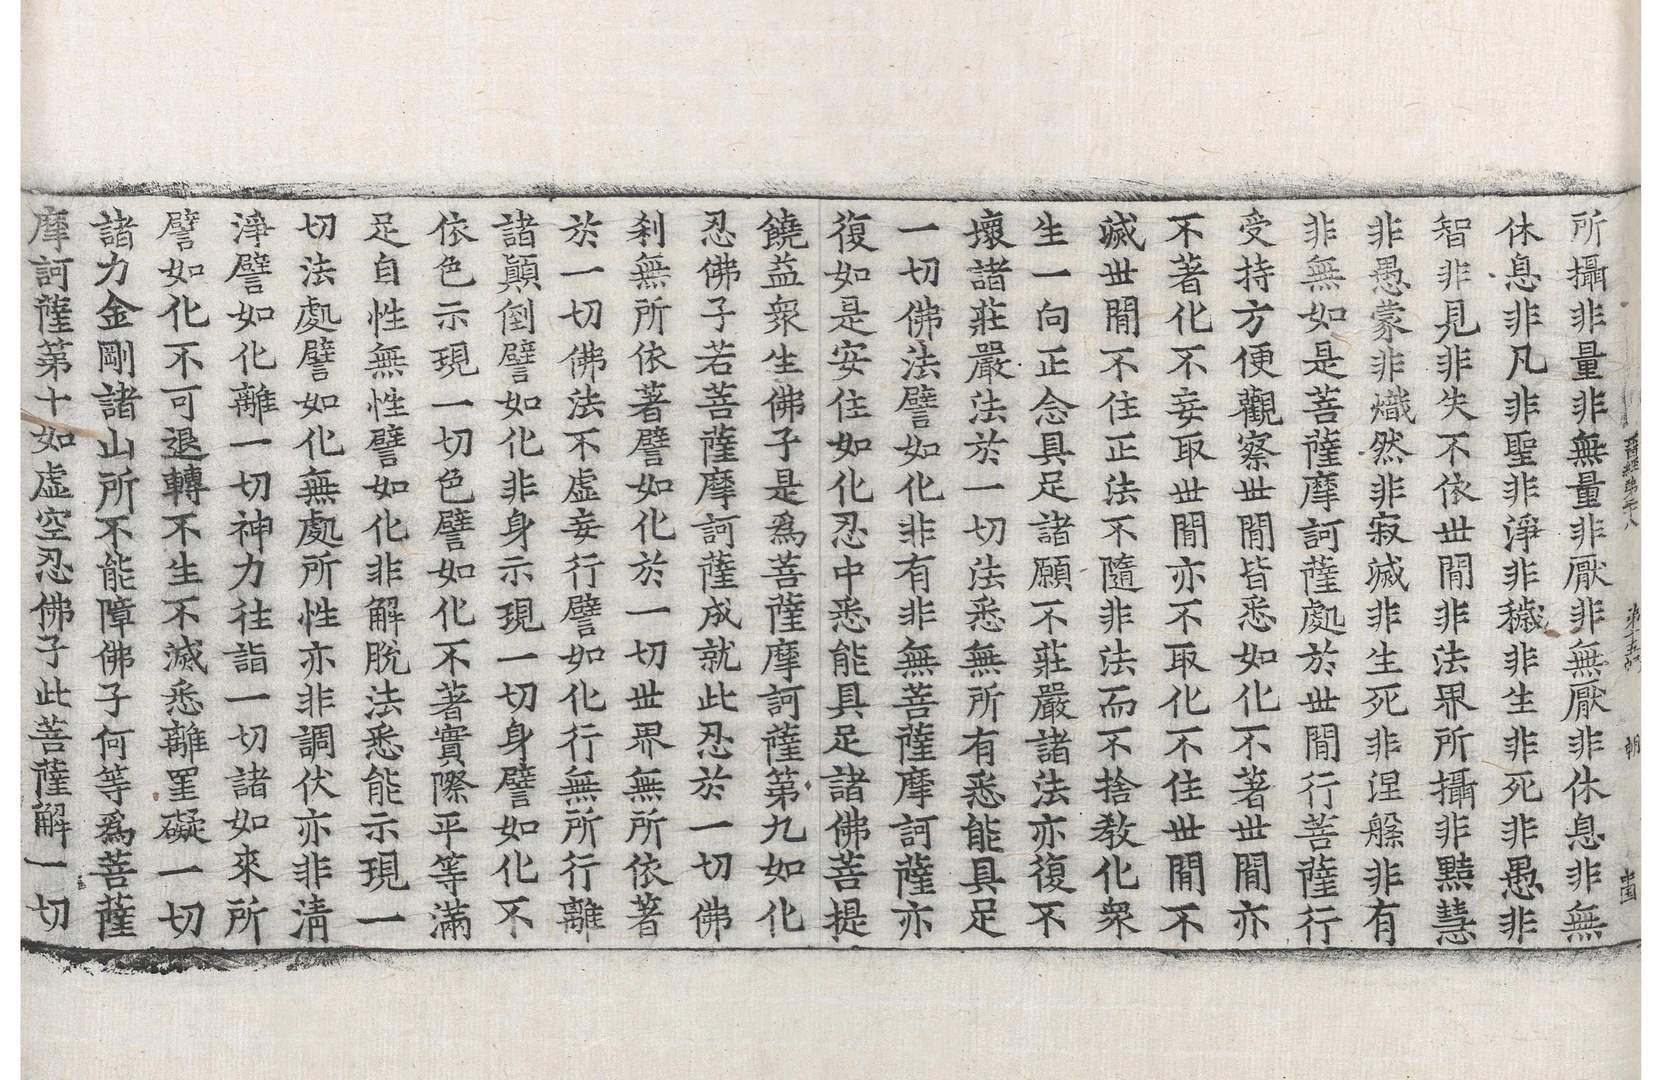 所攝非量非無量非厭非無厭非休息非無
休息非凡非聖非淨非穢非生非死非愚非
智非見非失不依世間非法界所攝非黠慧
非愚蒙非熾然非寂滅非生死非涅槃非有
非無如是菩薩摩訶薩處於世間行菩薩行
受持方便觀察世間皆悉如化不著世間亦
不著化不妄取世間亦不取化不住世間不
滅世間不住正法不隨非法而不捨教化衆
生一向正念具足諸願不莊嚴諸法亦復不
壞諸莊嚴法於一切法悉無所有悉能具足
一切佛法譬如化非有非無菩薩摩訶薩亦
復如是安住如化忍中悉能具足諸佛菩提
饒益衆生佛子是爲菩薩摩訶薩第九如化
忍佛子若菩薩摩訶薩成就此忍於一切佛
刹無所依著譬如化於一切世界無所依著
於一切佛法不虛妄行譬如化行無所行離
諸顛倒譬如化非身示現一切身譬如化不
依色示現一切色譬如化不著實際平等滿
足自性無性譬如化非解脫法悉能示現一
切法處譬如化無處所性亦非調伏亦非清
淨譬如化離一切神力往詣一切諸如來所
譬如化不可退轉不生不滅悉離罣礙一切
諸力金剛諸山所不能障佛子何等爲菩薩
摩訶薩第十如虛空忍佛子此菩薩解一切